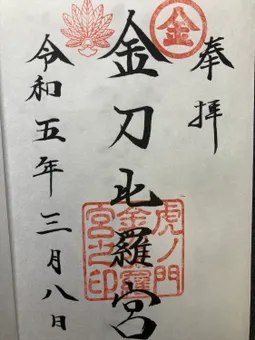 奉拝
金
金刀比羅宮
虎ノ門
宮之印
令和五年三月八日